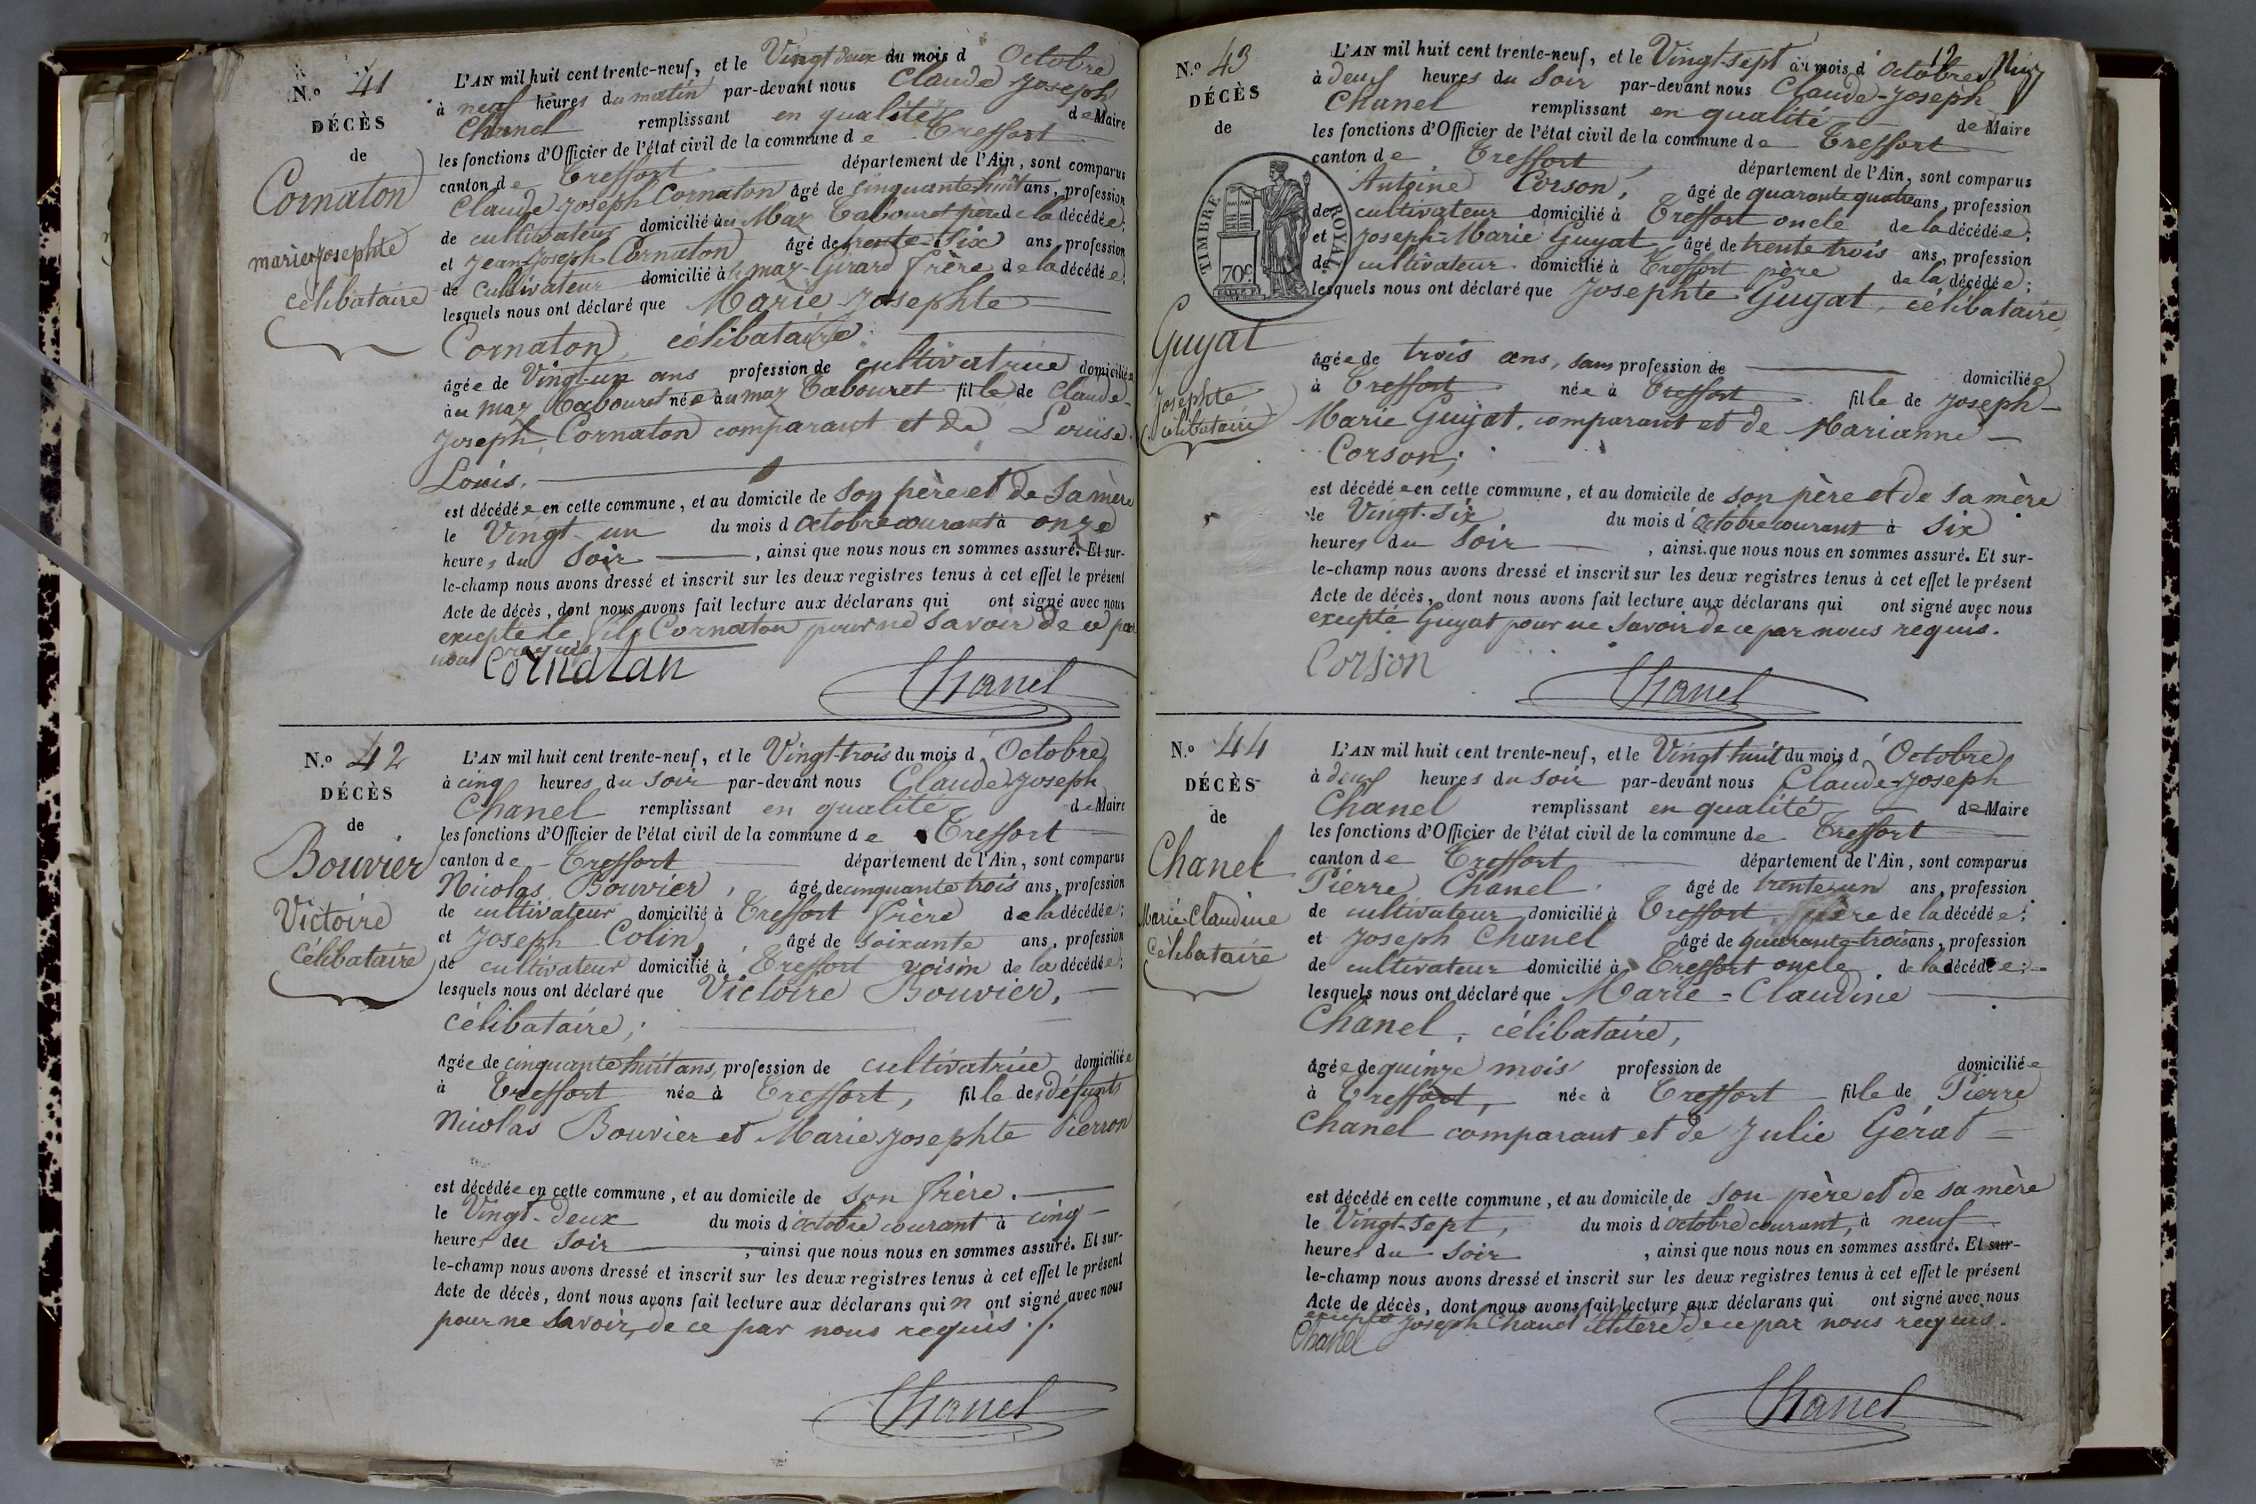 N.º 41
DÉCÈS
de
Cornaton
marie josephte
célibataire
L'AN mil huit cent trente-neuf, et le Vingt deux du mois d Octobre
à neuf heures du matin par-devant nous Claude Joseph
Chanel remplissant en qualité de Maire
les fonctions d'Officier de l'état civil de la commune de Treffort
canton de Treffort département de l'Ain, sont comparus
Claude-Joseph Cornaton âgé de cinquante huit ans, profession
de cultivateur domicilié au Maz Tabouret père de la décédée;
et Jean-Joseph Cornaton âgé de trente-six ans, profession
de cultivateur domicilié à maz-Girard frère de la décédée;
lesquels nous ont déclaré que Marie Josephte
Cornaton, célibataire;
âgée de Vingt-un ans profession de cultivatrice domiciliée
au maz Tabouret née au maz Tabouret fille de Claude-
Joseph Cornaton comparant et de Louise
Louis.
est décédée en cette commune, et au domicile de son père et de sa mère
le Vingt-un du mois d'octobre courant à onze
heures du soir, ainsi que nous nous en sommes assuré. Et sur-
le-champ nous avons dressé et inscrit sur les deux registres tenus à cet effet le présent
Acte de décès, dont nous avons fait lecture aux déclarans qui ont signé avec nous
excepté le fils Cornaton pour ne savoir de ce par
nous requis
Cornatan
Chanel
N.º 42
DÉCÈS
de
Bouvier
Victoire
Célibataire
L'AN mil huit cent trente-neuf, et le Vingt-trois du mois d'Octobre
à cinq heures du soir par-devant nous Claude-Joseph
Chanel remplissant en qualité de Maire
les fonctions d'Officier de l'état civil de la commune de Treffort
canton de Treffort département de l'Ain, sont comparus
Nicolas Bouvier, âgé de cinquante trois ans, profession
de cultivateur domicilié à Treffort frère de la décédée;
et Joseph Colin, âgé de soixante ans, profession
de cultivateur domicilié à Treffort voisin de la décédée;
lesquels nous ont déclaré que Victoire Bouvier,
célibataire;
âgée de cinquante huit ans, profession de cultivatrice domiciliée
à Treffort née à Treffort, fille des défunts
Nicolas Bouvier et Marie Josephte Pierron
est décédée en cette commune, et au domicile de son frère.
le Vingt-deux du mois d'octobre courant à cinq
heures du soir, ainsi que nous nous en sommes assuré. Et sur-
le-champ nous avons dressé et inscrit sur les deux registres tenus à cet effet le présent
Acte de décès, dont nous avons fait lecture aux déclarans qui n'ont signé avec nous
pour ne savoir, de ce par nous requis ./.
Chanel
N.º 43
DÉCÈS
de
TIMBRE ROYAL
70c
Guyat
Josephte
célibataire
12
L'AN mil huit cent trente-neuf, et le Vingt-sept du mois d'Octobre
à deux heures du soir par-devant nous Claude-Joseph
Chanel remplissant en qualité de Maire
les fonctions d'Officier de l'état civil de la commune de Treffort
canton de Treffort, département de l'Ain, sont comparus
Antoine Corson, âgé de quarante quatre ans, profession
de cultivateur domicilié à Treffort oncle de la décédée;
et Joseph-Marie Guyat âgé de trente trois ans, profession
de cultivateur domicilié à Treffort père de la décédée;
lesquels nous ont déclaré que Josephte Guyat, célibataire,
âgée de trois ans, sans profession de domiciliée
à Treffort née à Treffort fille de Joseph-
Marie Guyat, comparant et de Marianne
Corson;
est décédée en cette commune, et au domicile de son père et de sa mère
le Vingt-six du mois d'octobre courant à six
heures du soir, ainsi que nous nous en sommes assuré. Et sur-
le-champ nous avons dressé et inscrit sur les deux registres tenus à cet effet le présent
Acte de décès, dont nous avons fait lecture aux déclarans qui ont signé avec nous
excepté Guyat pour ne savoir de ce par nous requis.
Corson
Chanel
N.º 44
DÉCÈS
de
Chanel
Marie-Claudine
Célibataire
L'AN mil huit cent trente-neuf, et le Vingt huit du mois d'Octobre
à deux heures du soir par-devant nous Claude-Joseph
Chanel remplissant en qualité de Maire
les fonctions d'Officier de l'état civil de la commune de Treffort
canton de Treffort département de l'Ain, sont comparus
Pierre Chanel, âgé de trente-un ans, profession
de cultivateur domicilié à Treffort, père de la décédée;
et Joseph Chanel âgé de quarante-trois ans, profession
de cultivateur domicilié à Treffort oncle de la décédée;
lesquels nous ont déclaré que Marie-Claudine
Chanel, célibataire,
âgée de quinze mois profession de domiciliée
à Treffort, née à Treffort fille de Pierre
Chanel comparant et de Julie Gérat
est décédé en cette commune, et au domicile de son père et de sa mère
le Vingt-sept, du mois d'octobre courant, à neuf
heures du soir, ainsi que nous nous en sommes assuré. Et sur-
le-champ nous avons dressé et inscrit sur les deux registres tenus à cet effet le présent
Acte de décès, dont nous avons fait lecture aux déclarans qui ont signé avec nous
excepté Joseph Chanel illiteré de ce par nous requis.
Chanel
Chanel